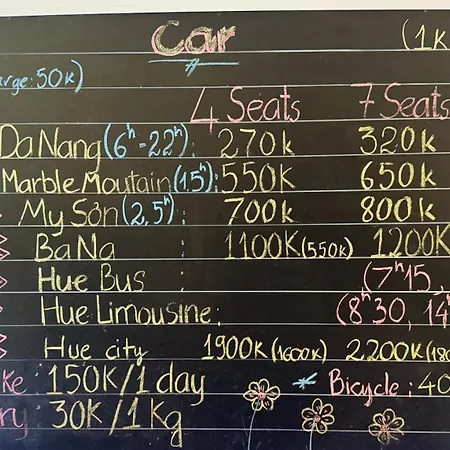 Car (1K
arge: 50K)
4 Seats 7 Seats
Da Nang (6h-22h): 270k 320k
Marble Moutain (1.5h): 550K 650k
My Sơn (2,5h): 700k 800k
BaNa : 1100K (550k) 1200K
Hue Bus : (7h15,
Hue Limousine: (8h30, 14h
Hue city 1900k (1600k) 2,200k (180
ke: 150K/1 day * Bicycle: 40
ry 30K/1Kg